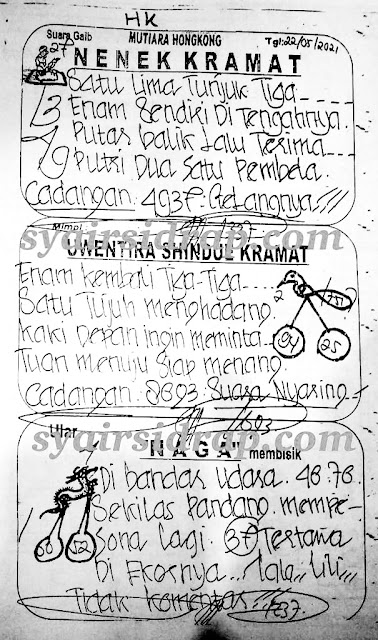 HK
Suara Gaib MUTIARA HONGKONG Tgl:22/05/2021
27
NENEK KRAMAT
Satu Lima Tunjuk Tiga
Enam Sendiri Di Tengahnya.
Putar balik Lalu Terima
Putri Dua Satu Pembela.
Cadangan. 4937. Gelangnya///
syairsidrap.com
Mimpi
UWENTIRA SHINDUL KRAMAT
Enam kembali Tiga-Tiga
Satu Tujuh menghadang.
2
kaki Depan ingin meminta
94 25
Tuan menuju Siap menang.
Cadangan. 2893. Suara Nyaring
syairsidrap.com
Ular
"NAGA" membisik
Di bandar Udara. 48.78.
Sekilas Pandang. mempe-
60 52
sona Lagi. 37 Tertawa
Di Ekornya...lala..Lili,,,
Tidak komentar!!!